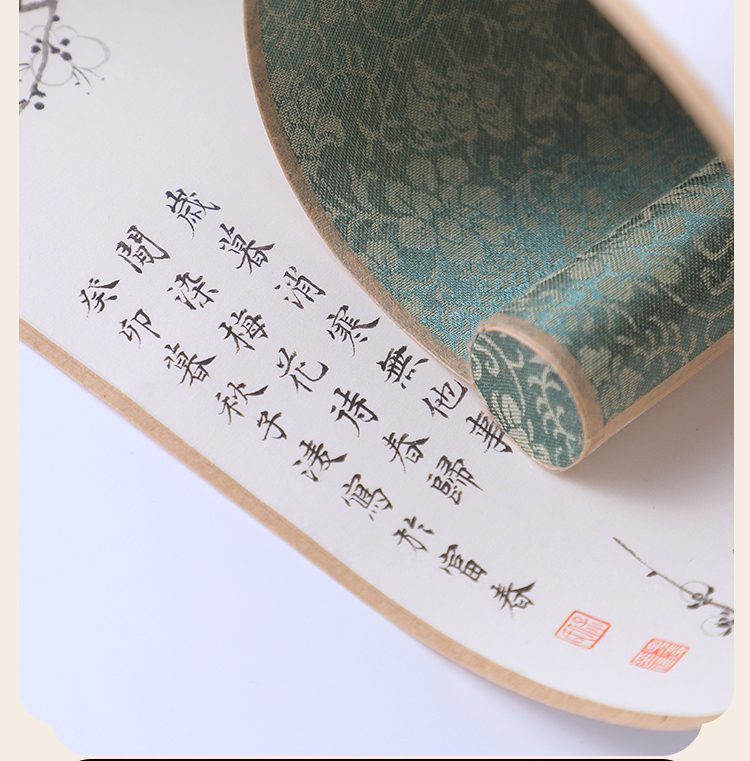 歲暮消寒無他事
間染梅花待春歸
癸卯暮秋子淩寫於富春